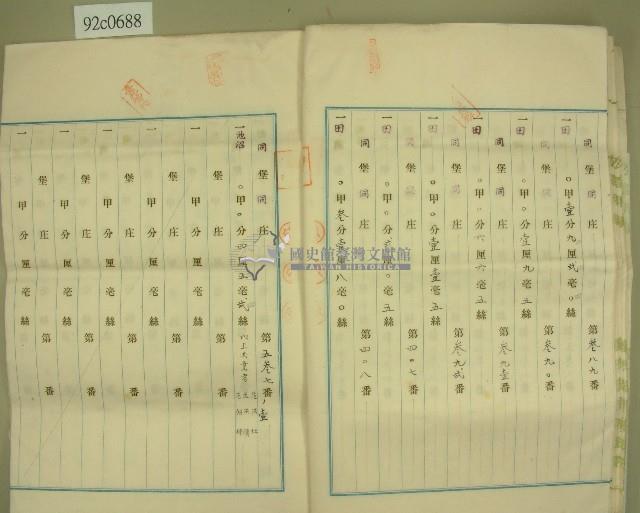 92c0688
同堡同庄 第叁八九番
一田 〇甲壹分九厘貳毫〇絲
同堡同庄 第叁九〇番
一田 〇甲〇分壹厘九毫五絲
同堡同庄 第叁九壹番
一田 〇甲〇分六厘六毫五絲
同堡同庄 第叁九貳番
一田 〇甲〇分壹厘壹毫五絲
同堡同庄 第四〇七番
一田 〇甲貳分〇厘〇毫五絲
同堡同庄 第四〇八番
一田 〇甲叁分壹厘八毫〇絲
國史館臺灣文獻館
TAIWAN HISTORICA
同堡同庄 第五叁七ノ壹番
一池沼 〇甲〇分四厘五毫貳絲
堡 庄 第 番
一 甲 分 厘 毫 絲
堡 庄 第 番
一 甲 分 厘 毫 絲
堡 庄 第 番
一 甲 分 厘 毫 絲
堡 庄 第 番
一 甲 分 厘 毫 絲
堡 庄 第 番
一 甲 分 厘 毫 絲